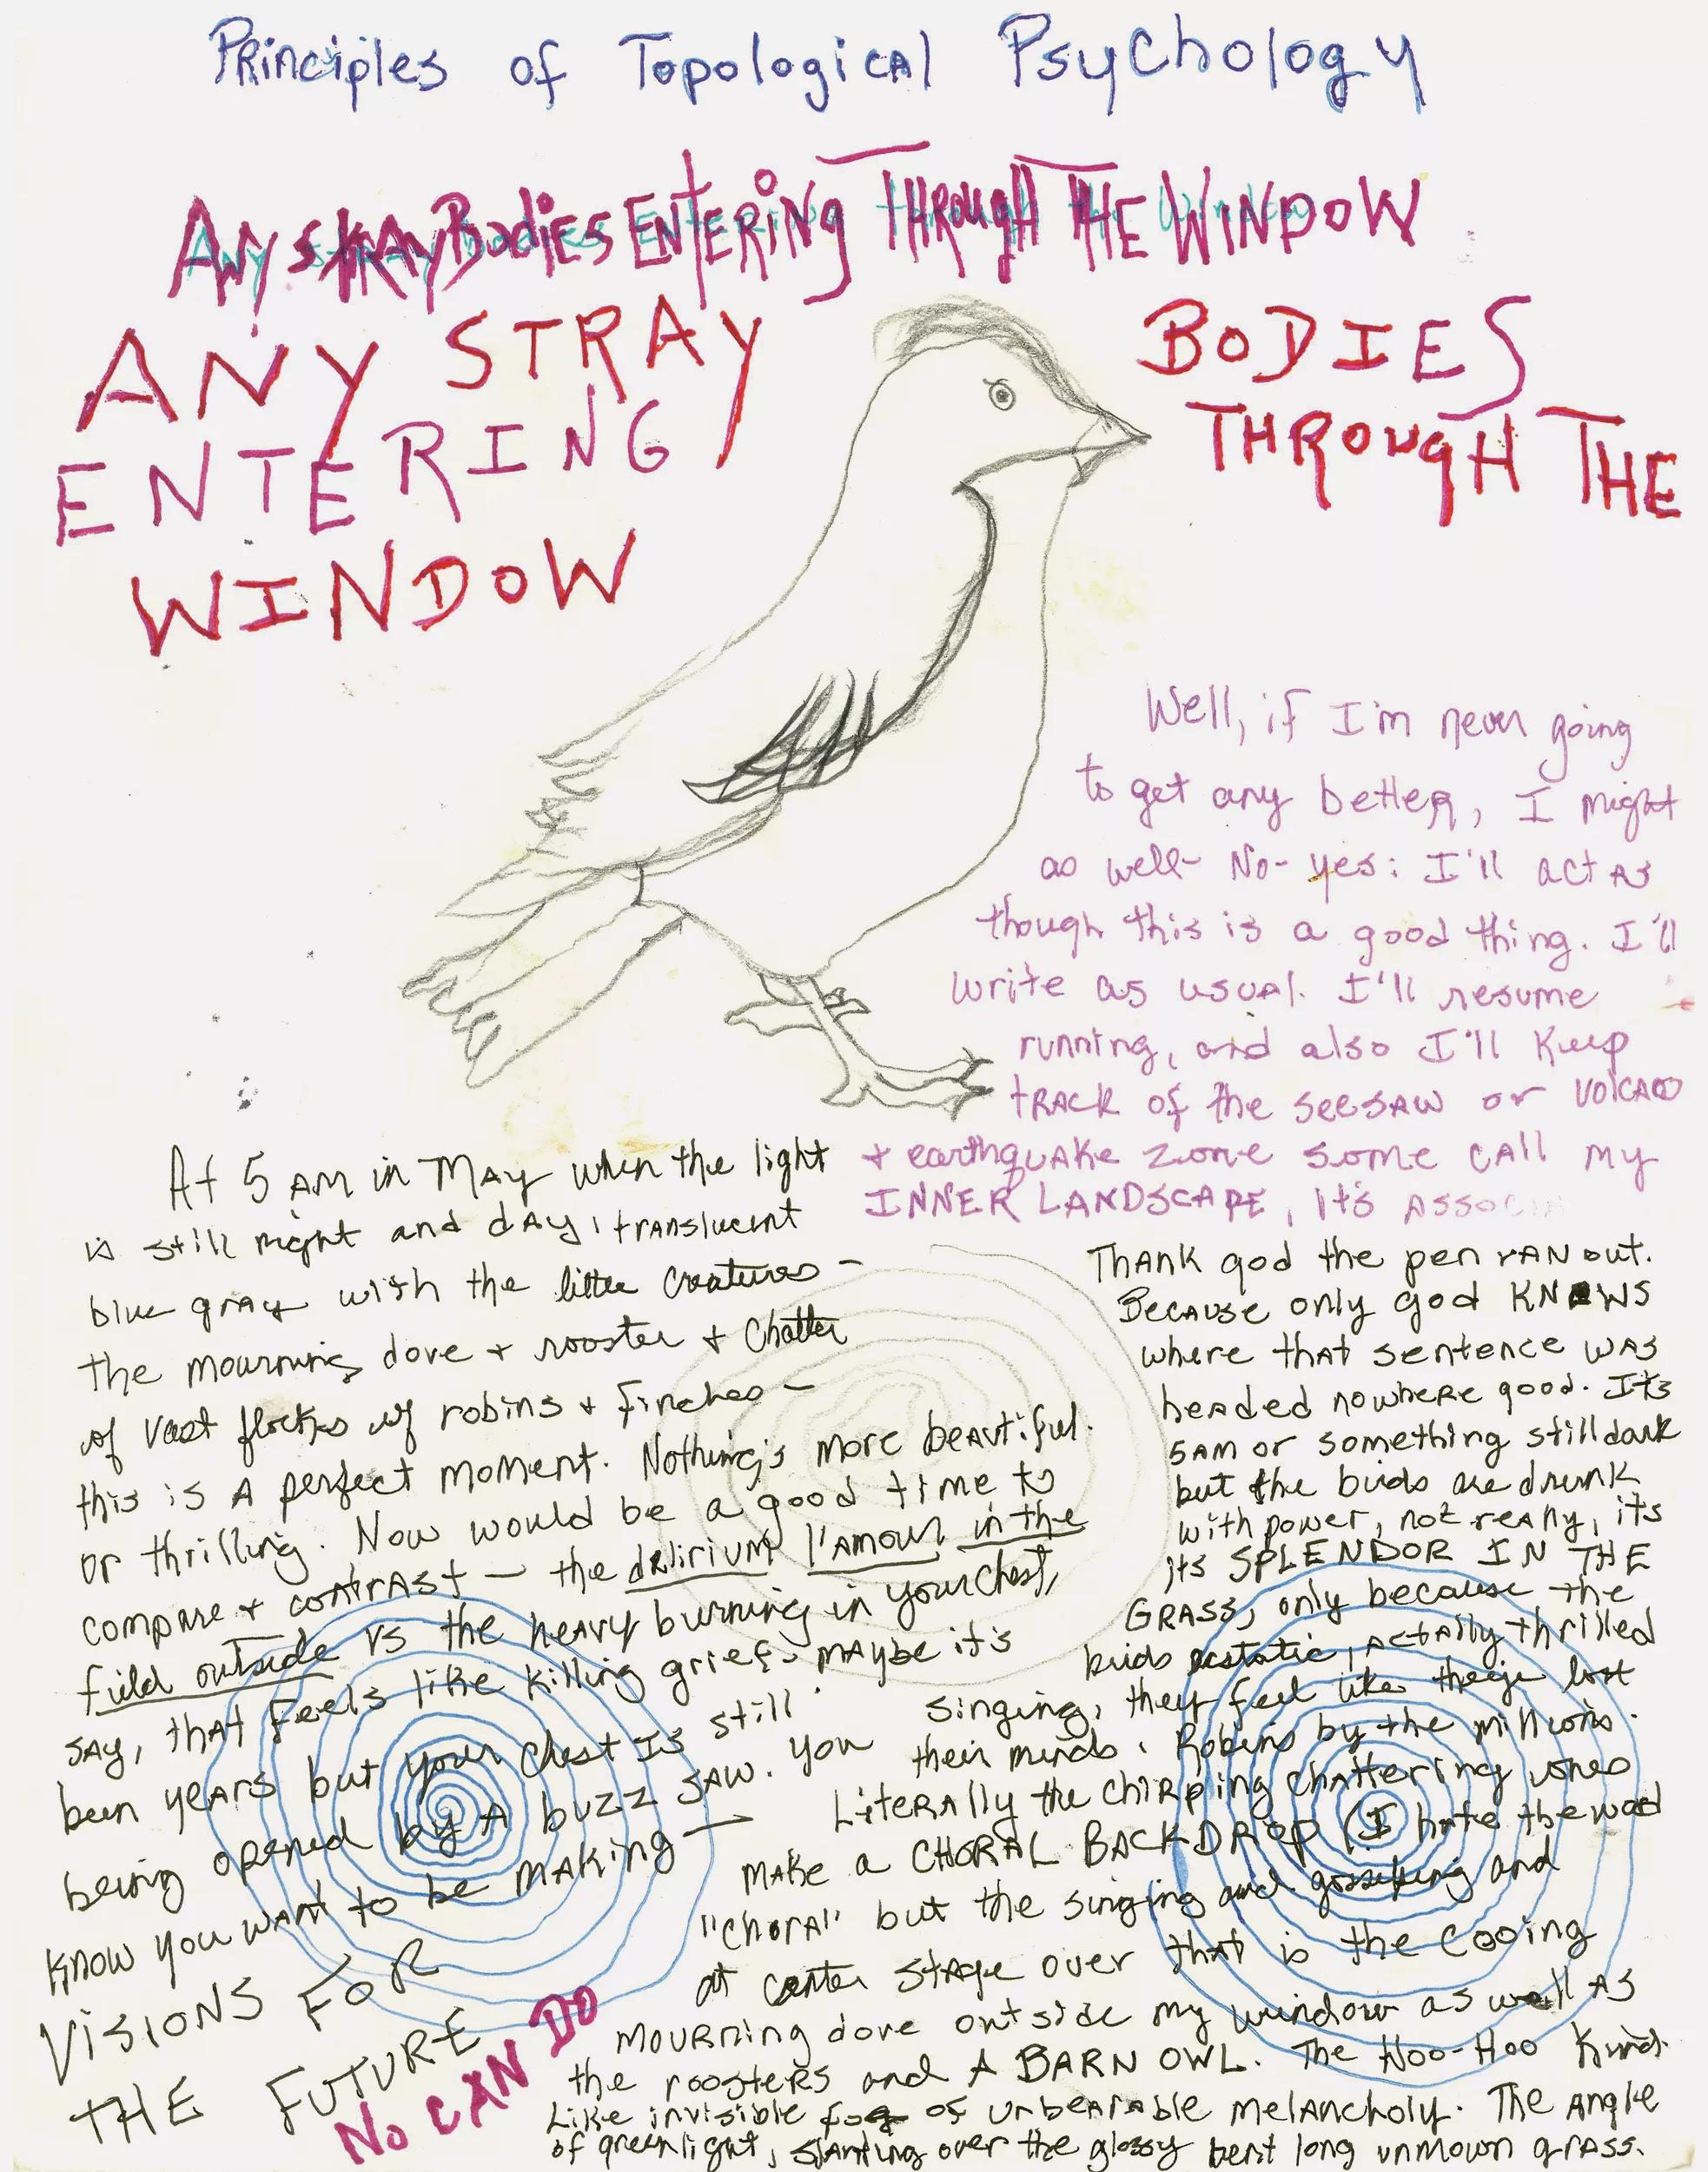 Principles of Topological Psychology
ANY STRAY BODiES ENTERING THROUGH THE WINDOW
ANY STRAY BODIES
ENTERING THROUGH THE
WINDOW
Well, if I'm never going
to get any better, I might
as well- No- yes: I'll act as
though this is a good thing. I'll
write as usual. I'll resume
running, and also I'll keep
track of the seesaw or volcano
+ earthquake zone some call my
INNER LANDSCAPE, It's associ
At 5 AM in May when the light
is still night and day, translucent
blue gray with the little creatures -
the mourning dove + rooster + chatter
of vast flocks of robins + finches -
this is a perfect moment. Nothing's more beautiful.
or thrilling. Now would be a good time to
compare + contrast - the delirium l'amour in the
field outside vs the heavy burning in your chest,
say, that feels like killing grief. maybe it's
been years but your chest is still
being opened by a buzz saw. You
know you want to be making —
VISIONS FOR
THE FUTURE
No CAN DO
Thank god the pen ran out.
Because only god knows
where that sentence was
headed nowhere good. It's
5AM or something still dark
but the birds are drunk
with power, not really, its
its SPLENDOR IN THE
GRASS, only because the
birds ecstatic, actually thrilled
singing, they feel like they've lost
their minds. Robins by the millions.
Literally the chirping chattering ones
make a CHORAL BACKDROP (I hate the word
"choral" but the singing and gossiping and
at center stage over that is the cooing
mourning dove outside my window as well as
the roosters and A BARN OWL. The Hoo-Hoo kind.
Like invisible fog of unbearable melancholy. The angle
of greenlight, slanting over the glossy bent long unmown grass.